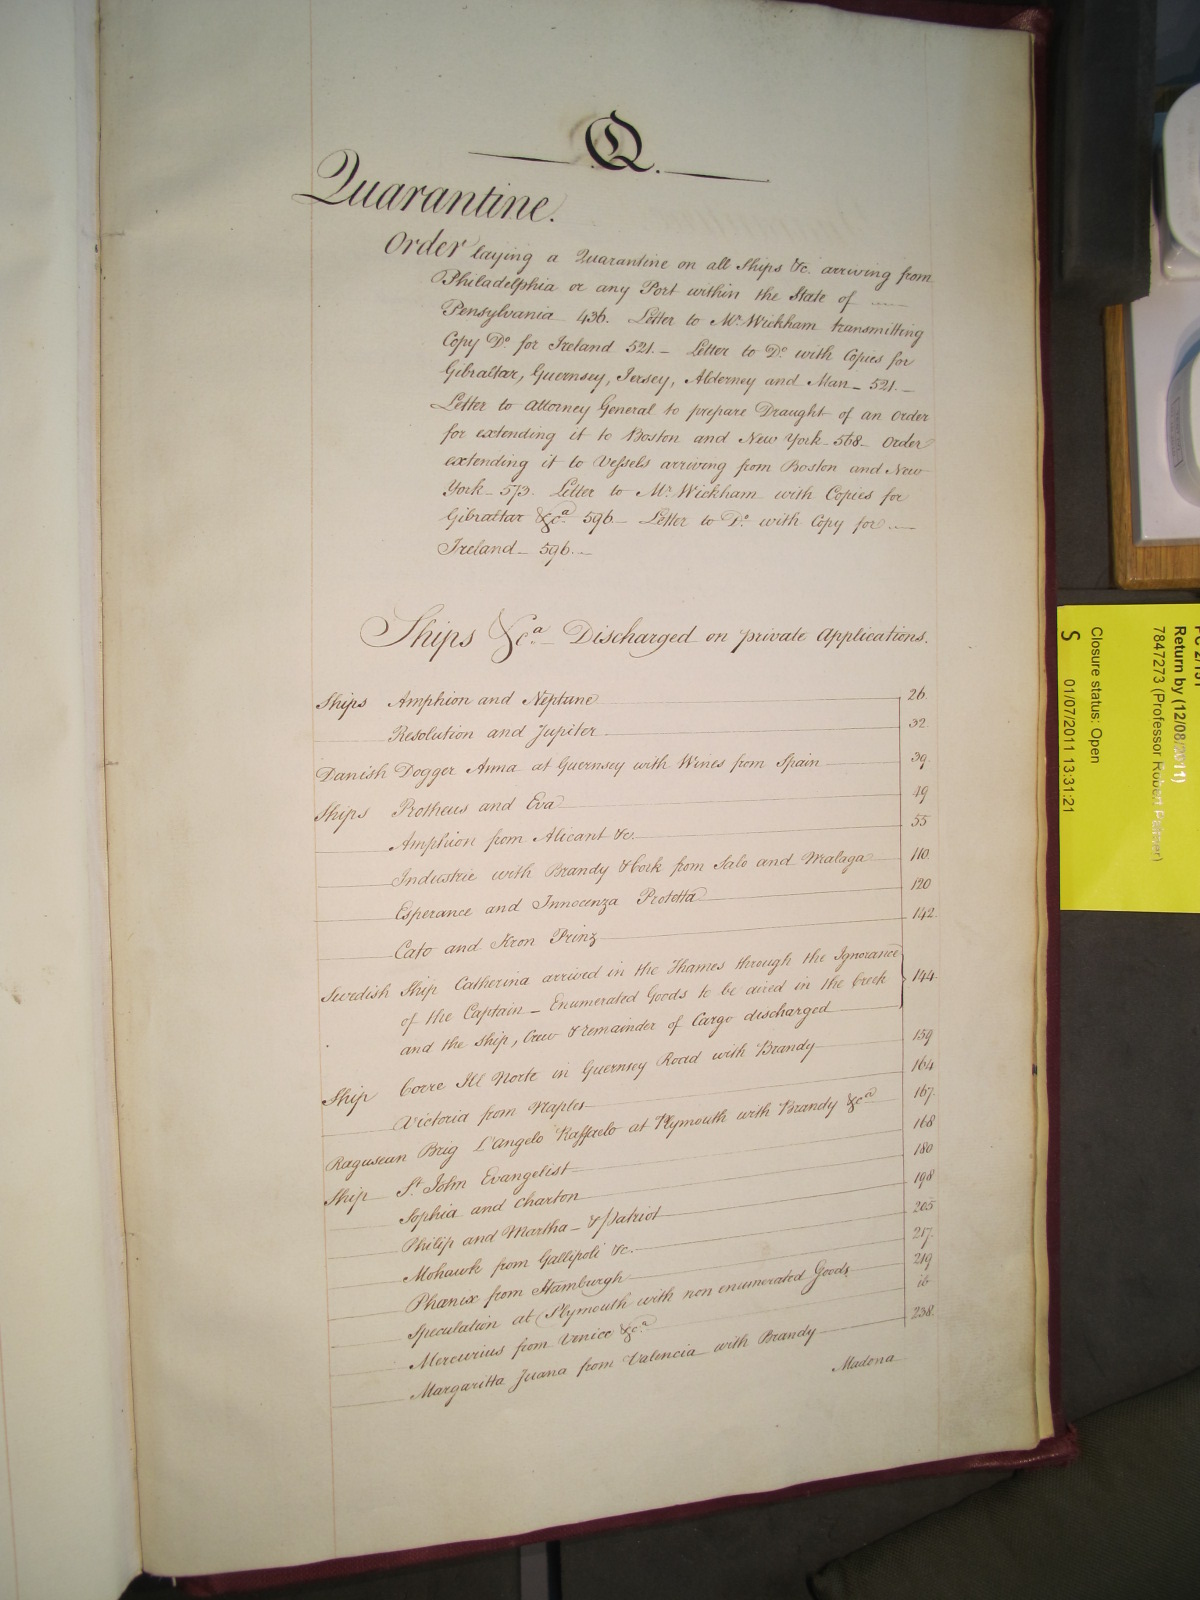 Q.
Quarantine.
Order laying a Quarantine on all Ships &c. arriving from
Philadelphia or any Port within the State of
Pensylvania 436. Letter to Mr. Wickham transmitting
Copy Do. for Ireland 521.— Letter to Do. with Copies for
Gibraltar, Guernsey, Jersey, Alderney and Man— 521.—
Letter to Attorney General to prepare Draught of an Order
for extending it to Boston and New York— 568— Order
extending it to Vessels arriving from Boston and New
York— 573. Letter to Mr. Wickham with Copies for
Gibraltar &ca. 596— Letter to Do. with Copy for
Ireland— 596.—
Ships &ca.— Discharged on private Applications.
Ships Amphion and Neptune 26.
Resolution and Jupiter 32
Danish Dogger Anna at Guernsey with Wines from Spain 39
Ships Protheus and Eva 49
Amphion from Alicant &c. 55
Industrie with Brandy & Cork from Salo and Malaga 110.
Esperance and Innocenza Protetta 120
Cato and Kron Prinz 142.
Swedish Ship Catherina arrived in the Thames through the Ignorance
of the Captain— Enumerated Goods to be aired in the Creek 144
and the Ship, Crew & remainder of Cargo discharged
Ship Corre Ill Norte in Guernsey Road with Brandy 159
Victoria from Naples 164
Ragusean Brig L'Angelo Raffaelo at Plymouth with Brandy &ca 167.
Ship St. John Evangelist 168
Sophia and Charton 180
Philip and Martha— & Patriot 198
Mohawk from Gallipoli &c. 205
Phœnix from Hamburgh 217.
Speculation at Plymouth with non enumerated Goods 219
Mercurius from Venice &ca. ib
Margaritta Juana from Valencia with Brandy 238.
Madona
Return by (12/08/2011)
7847273 (Professor Robert Palmer)
Closure status: Open
S 01/07/2011 13:31:21